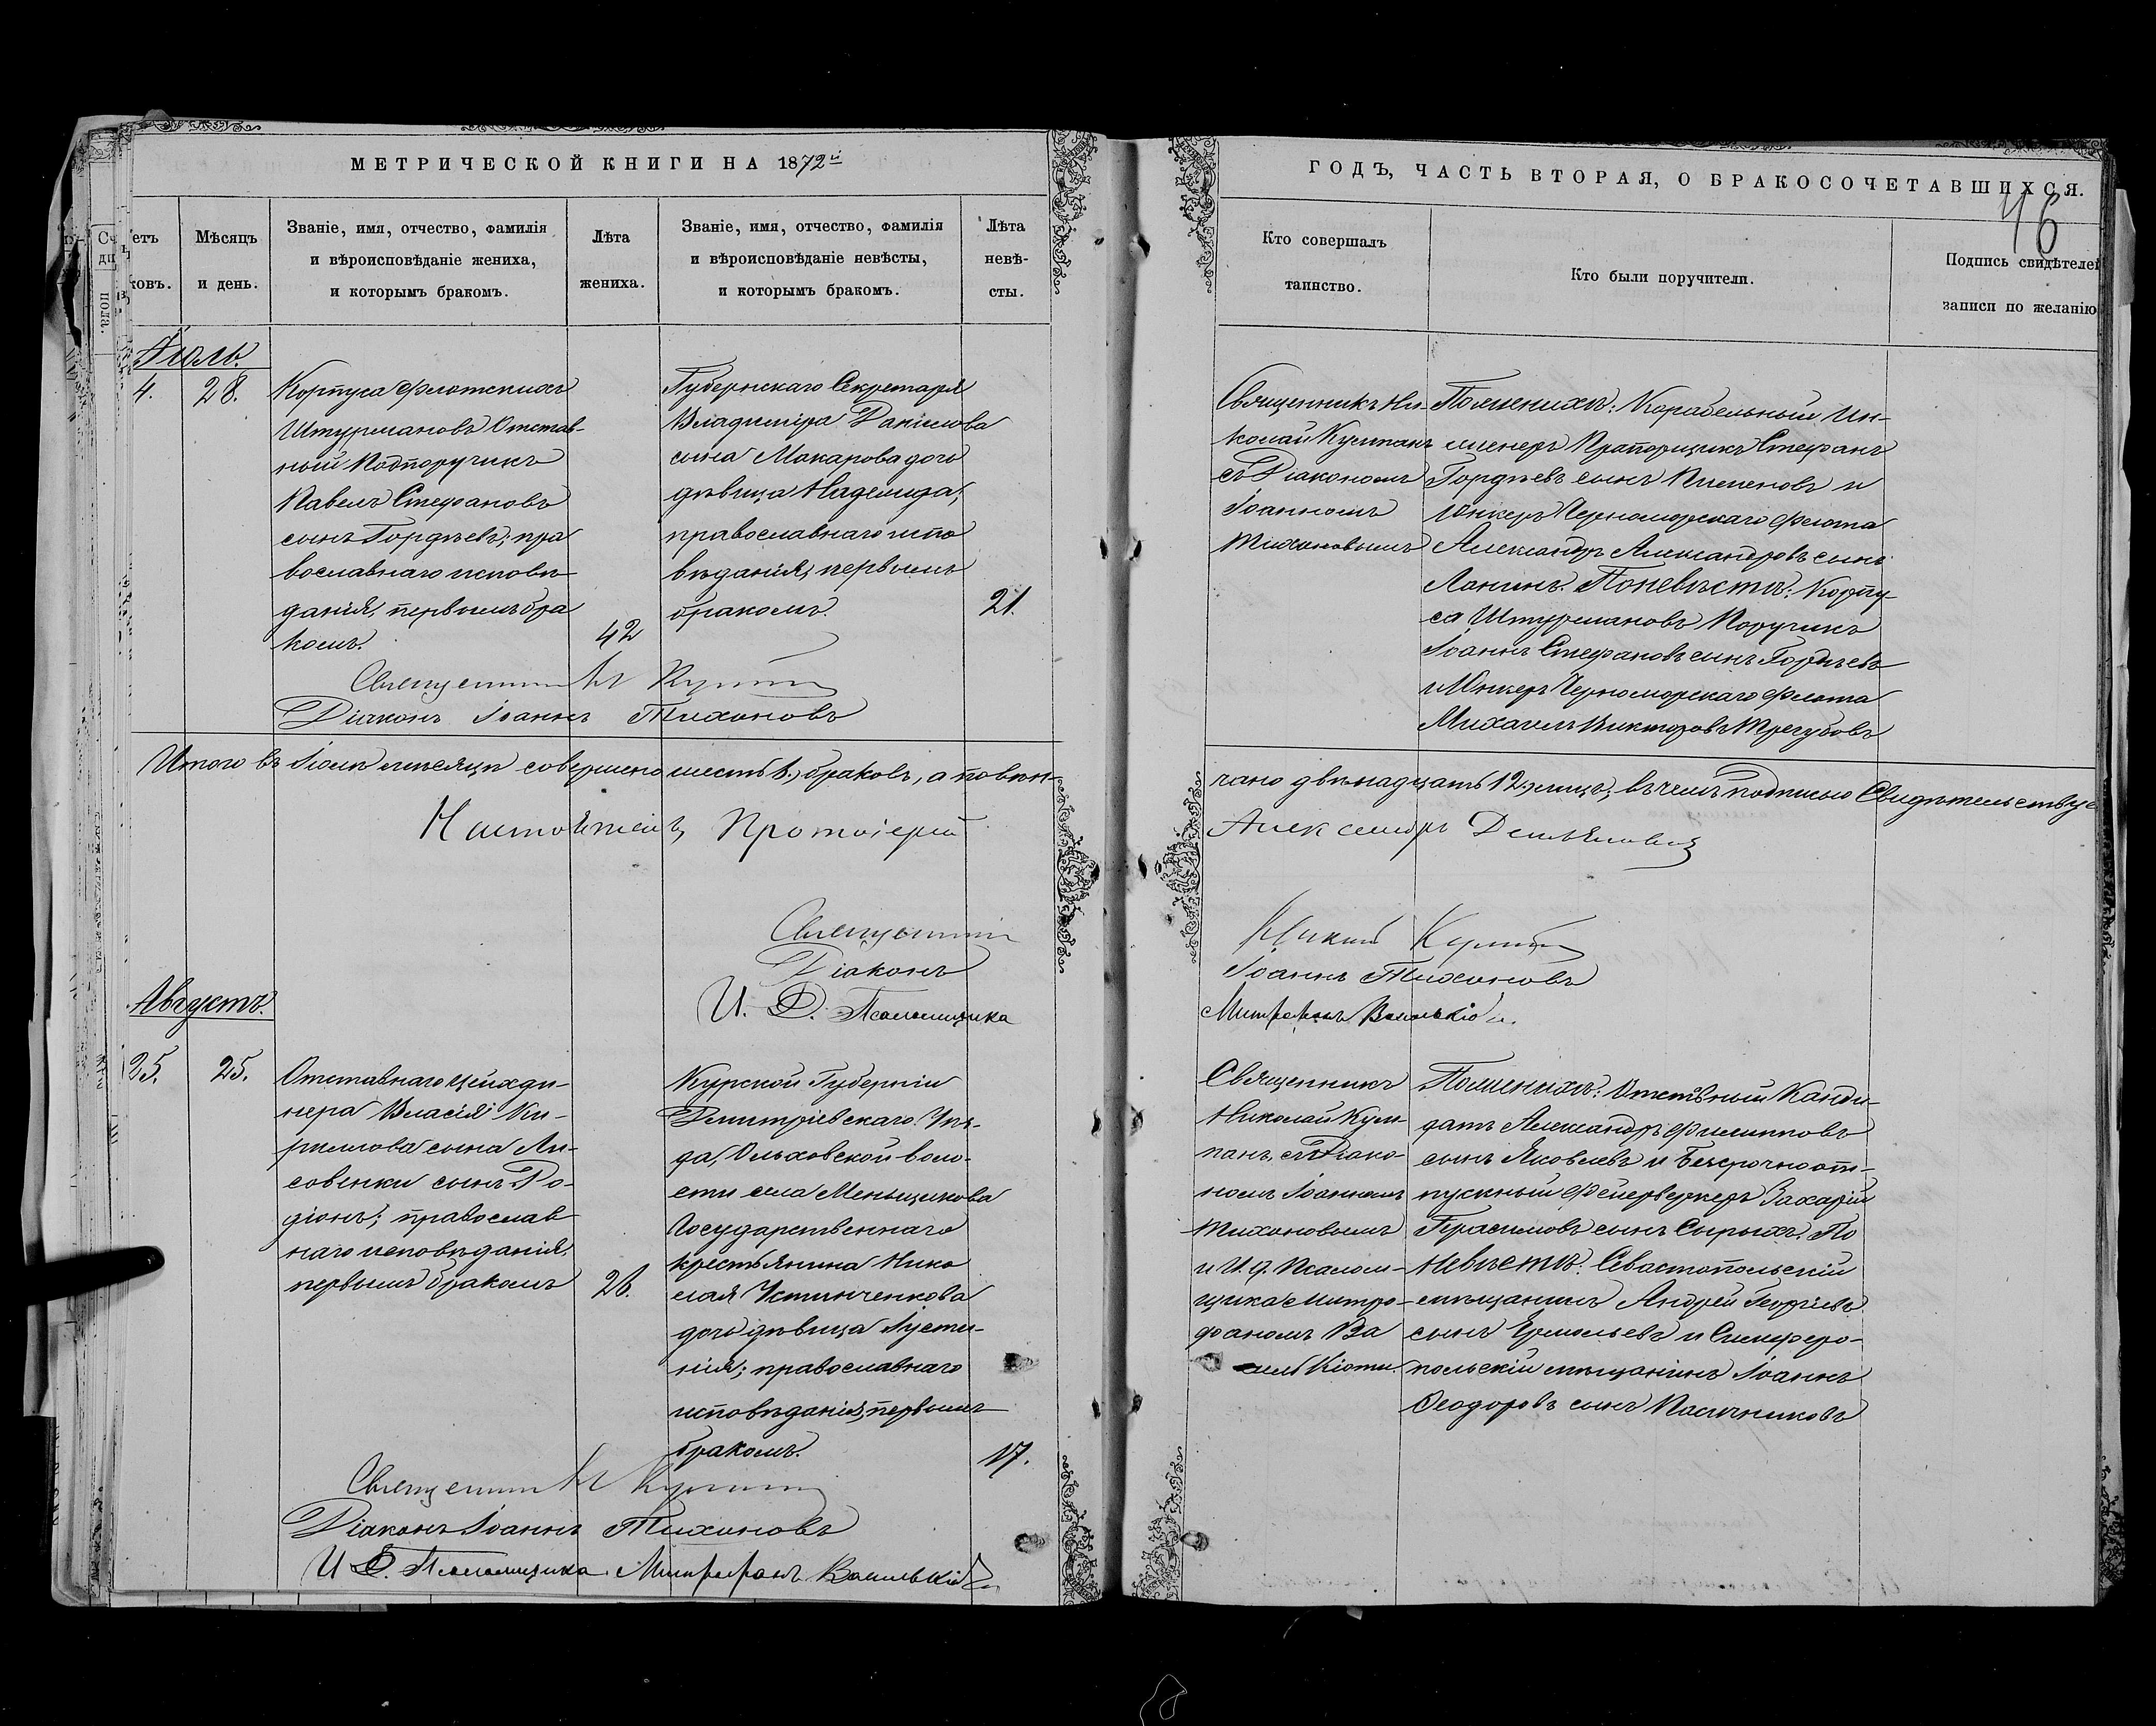 МЕТРИЧЕСКОЙ КНИГИ НА 1872й
ГОДЪ, ЧАСТЬ ВТОРАЯ, О БРАКОСОЧЕТАВШИХСЯ.
46
етъ
ковъ.
Мѣсяцъ
и день.
Званіе, имя, отчество, фамилія
и вѣроисповѣданіе жениха,
и которымъ бракомъ.
Лѣта
жениха.
Званіе, имя, отчество, фамилія
и вѣроисповѣданіе невѣсты,
и которымъ бракомъ.
Лѣта
невѣ-
сты.
Кто совершалъ
таинство.
Кто были поручители.
Подпись свидѣтелей
записи по желанію
Іюль.
4.
28.
Корпуса Флотскихъ
Штурмановъ Отстав-
ный Подпоручикъ
Павелъ Стефановъ
сынъ Гордѣевъ; пра
вославнаго исповѣ
данія, первымъ бра
комъ.
42
Губернскаго Секретаря
Владиміра Данилова
сына Макарова дочь
дѣвица Надежда;
православнаго испо
вѣданія, первымъ
бракомъ.
21.
Священникъ Ни-
колай Кулпанъ
съ Діакономъ
Іоанномъ
Тихоновымъ
По женихѣ: Корабельный Ин-
женеръ Прапорщикъ Стефанъ
Гордѣевъ сынъ Пименовъ и
Юнкеръ Черноморскаго Флота
Александръ Александровъ сынъ
Ланинъ. По невѣстѣ: Корпу-
са Штурмановъ Поручикъ
Іоаннъ Стефановъ сынъ Гордѣевъ
и Юнкеръ Черноморскаго Флота
Михаилъ Викторовъ Трегубовъ
Священникъ Н
Діаконъ Іоаннъ Тихоновъ
Итого въ Іюлѣ мѣсяцѣ совершено шесть 6. браковъ, а повѣн-
чано двѣнадцать 12. лицъ; въ чемъ подписью Свидѣтельствуе
Настоятель, Протоіерей
Александръ Демьяновичъ
Священникъ
Николай
Діаконъ
Іоаннъ Тихоновъ
И. Д. Псаломщика
Митрофанъ
Августъ.
25.
25.
Отставнаго цейхди-
нера Власія Ки-
рилова сына Ли-
совенки сынъ Ро-
діонъ; православ
наго исповѣданія,
первымъ бракомъ
26.
Курской Губерніи
Дмитріевскаго Уѣз-
да, Ольховской воло-
сти села Меньщикова
Государственнаго
крестьянина Нико
лая Устинченкова
дочь дѣвица Іусти-
нія; православнаго
исповѣданія, первымъ
бракомъ.
17.
Священникъ
Николай Кул-
панъ, съ Діако-
номъ Іоанномъ
Тихоновымъ
и И. д. Псалом-
щика Митро-
фаномъ Ва
По женихѣ: Отставный Канди-
датъ Александръ Филипповъ
сынъ Яковлевъ и Безсрочноот-
пускный Фейерверкеръ Захарій
Герасимовъ сынъ Сырыхъ. По
невѣстѣ: Севастопольскій
мѣщанинъ Андрей Георгіевъ
сынъ Ермольевъ и Симферо-
польскій мѣщанинъ Іоаннъ
Ѳеодоровъ сынъ Пасѣчниковъ
Священникъ Н
Діаконъ Іоаннъ Тихоновъ
И Д. Псаломщика Митрофанъ